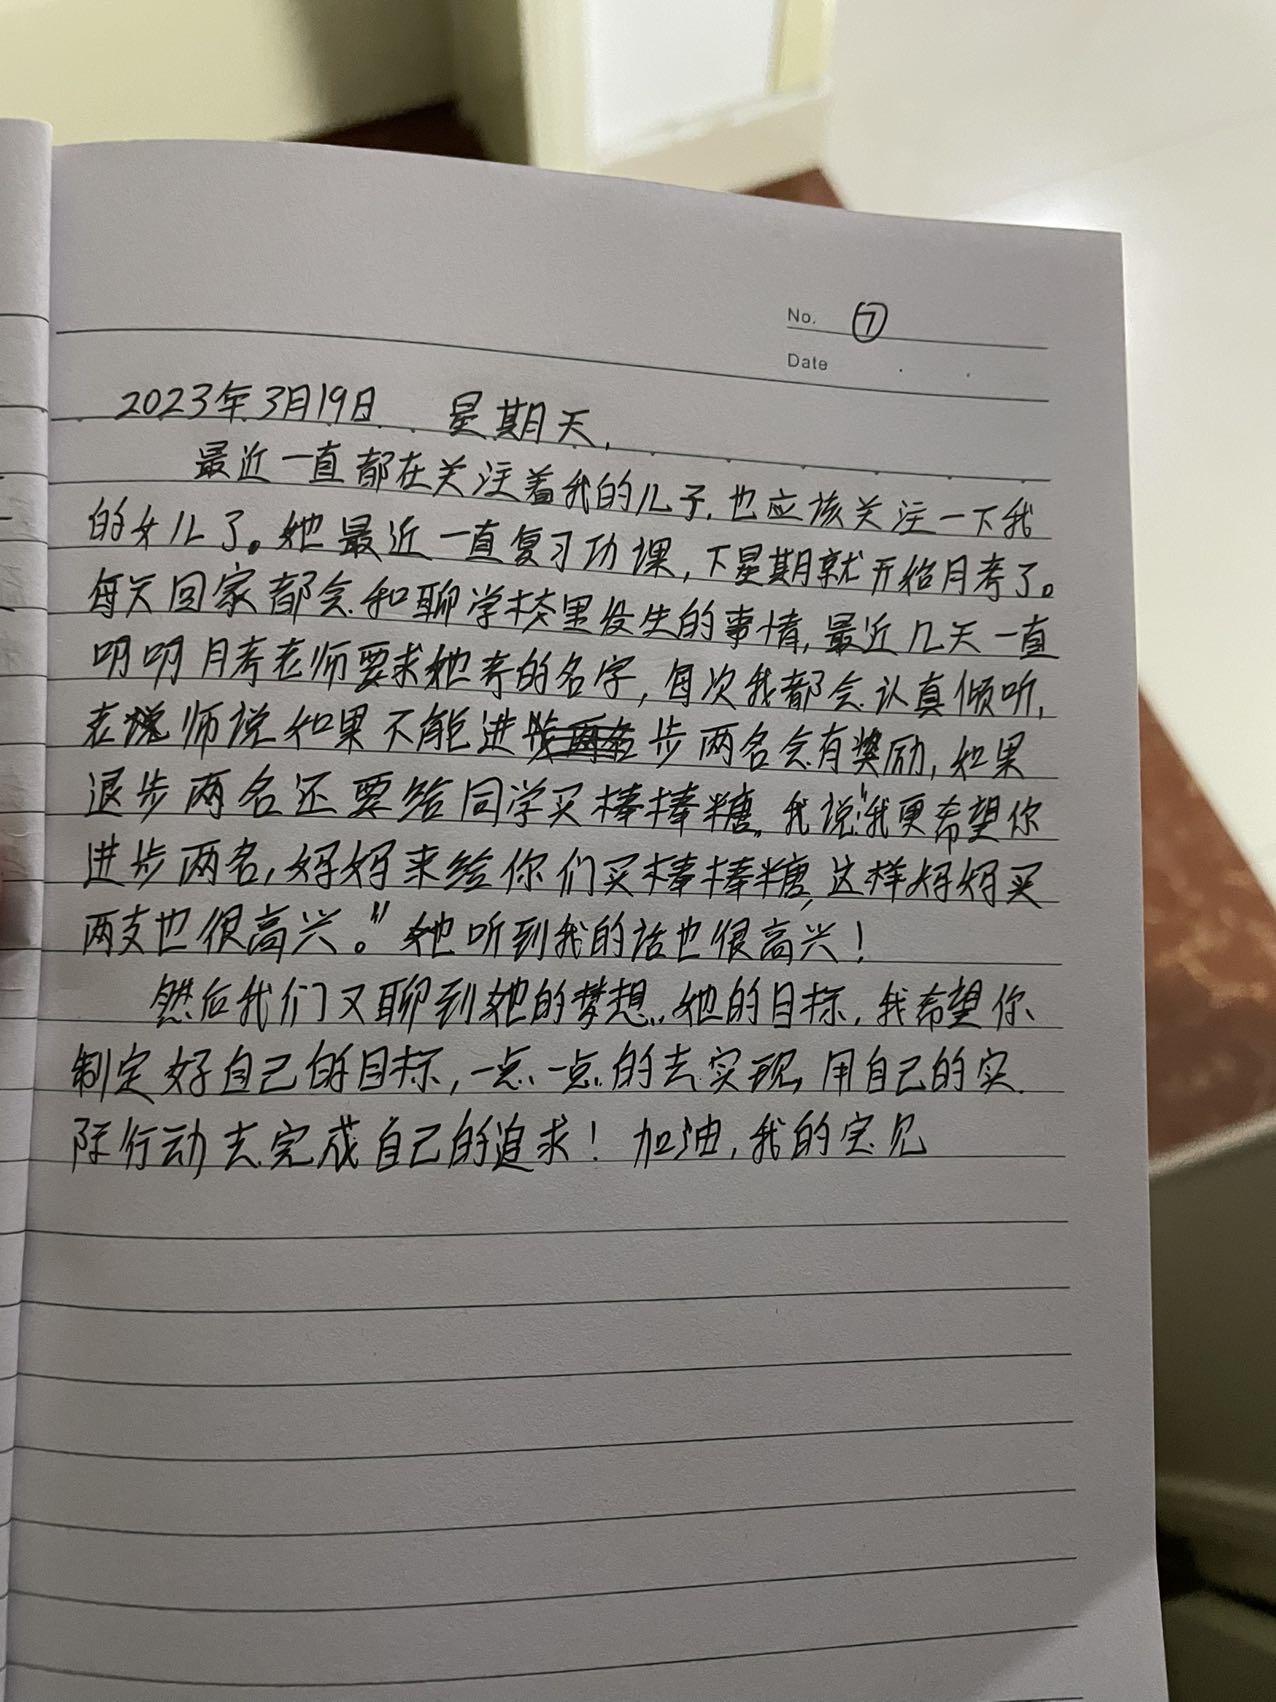 No. ⑦
Date
2023年3月19日 星期天,
最近一直都在关注着我的儿子,也应该关注一下我
的女儿了。她最近一直复习功课,下星期就开始月考了。
每天回家都会和聊学校里发生的事情,最近几天一直
叨叨月考老师要求她考的名字,每次我都会认真倾听,
老师说如果不能进步两名会有奖励,如果
退步两名还要给同学买棒棒糖。我说:“我更希望你
进步两名,妈妈来给你们买棒棒糖,这样妈妈买
两支也很高兴。”她听到我的话也很高兴!
然后我们又聊到她的梦想,她的目标,我希望你
制定好自己的目标,一点一点的去实现,用自己的实
际行动去完成自己的追求!加油,我的宝贝